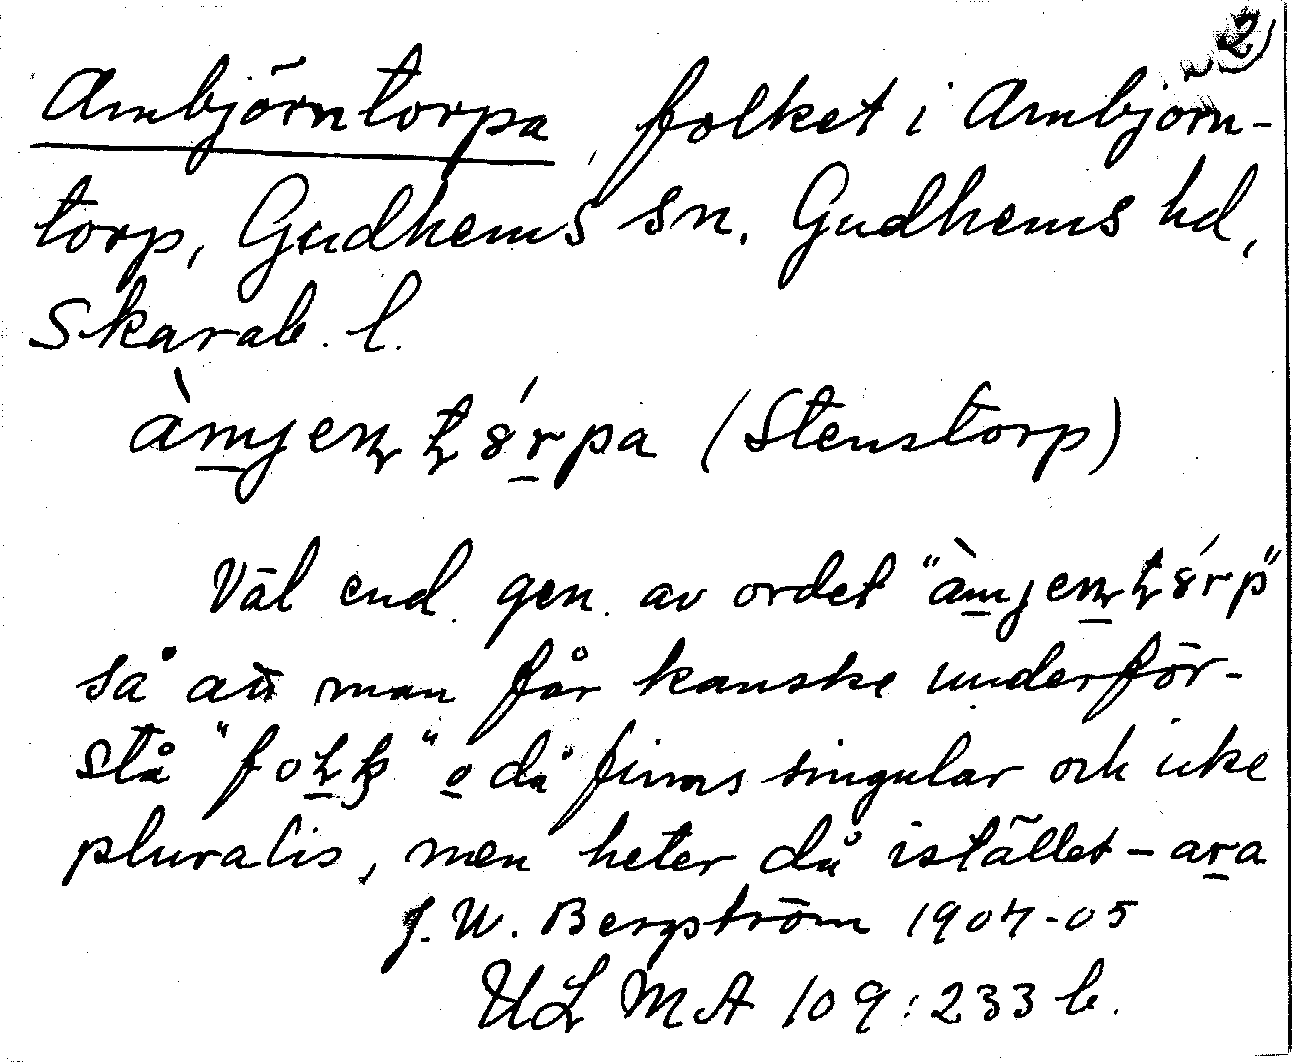 2)
Ambjörntorpa, folket i Ambjörn-
torp, Gudhems sn. Gudhems hd,
Skarab. l.
àmjen̨ţȣ́rpa (Stenstorp)
Väl end. gen. av ordet "àmjen̨ţȣ́rp"
så att man får kanske underför-
stå "folk" o då finns singular och icke
pluralis, men heter då istället -ara
J. W. Bergström 1904-05
ULMA 109:233 b.